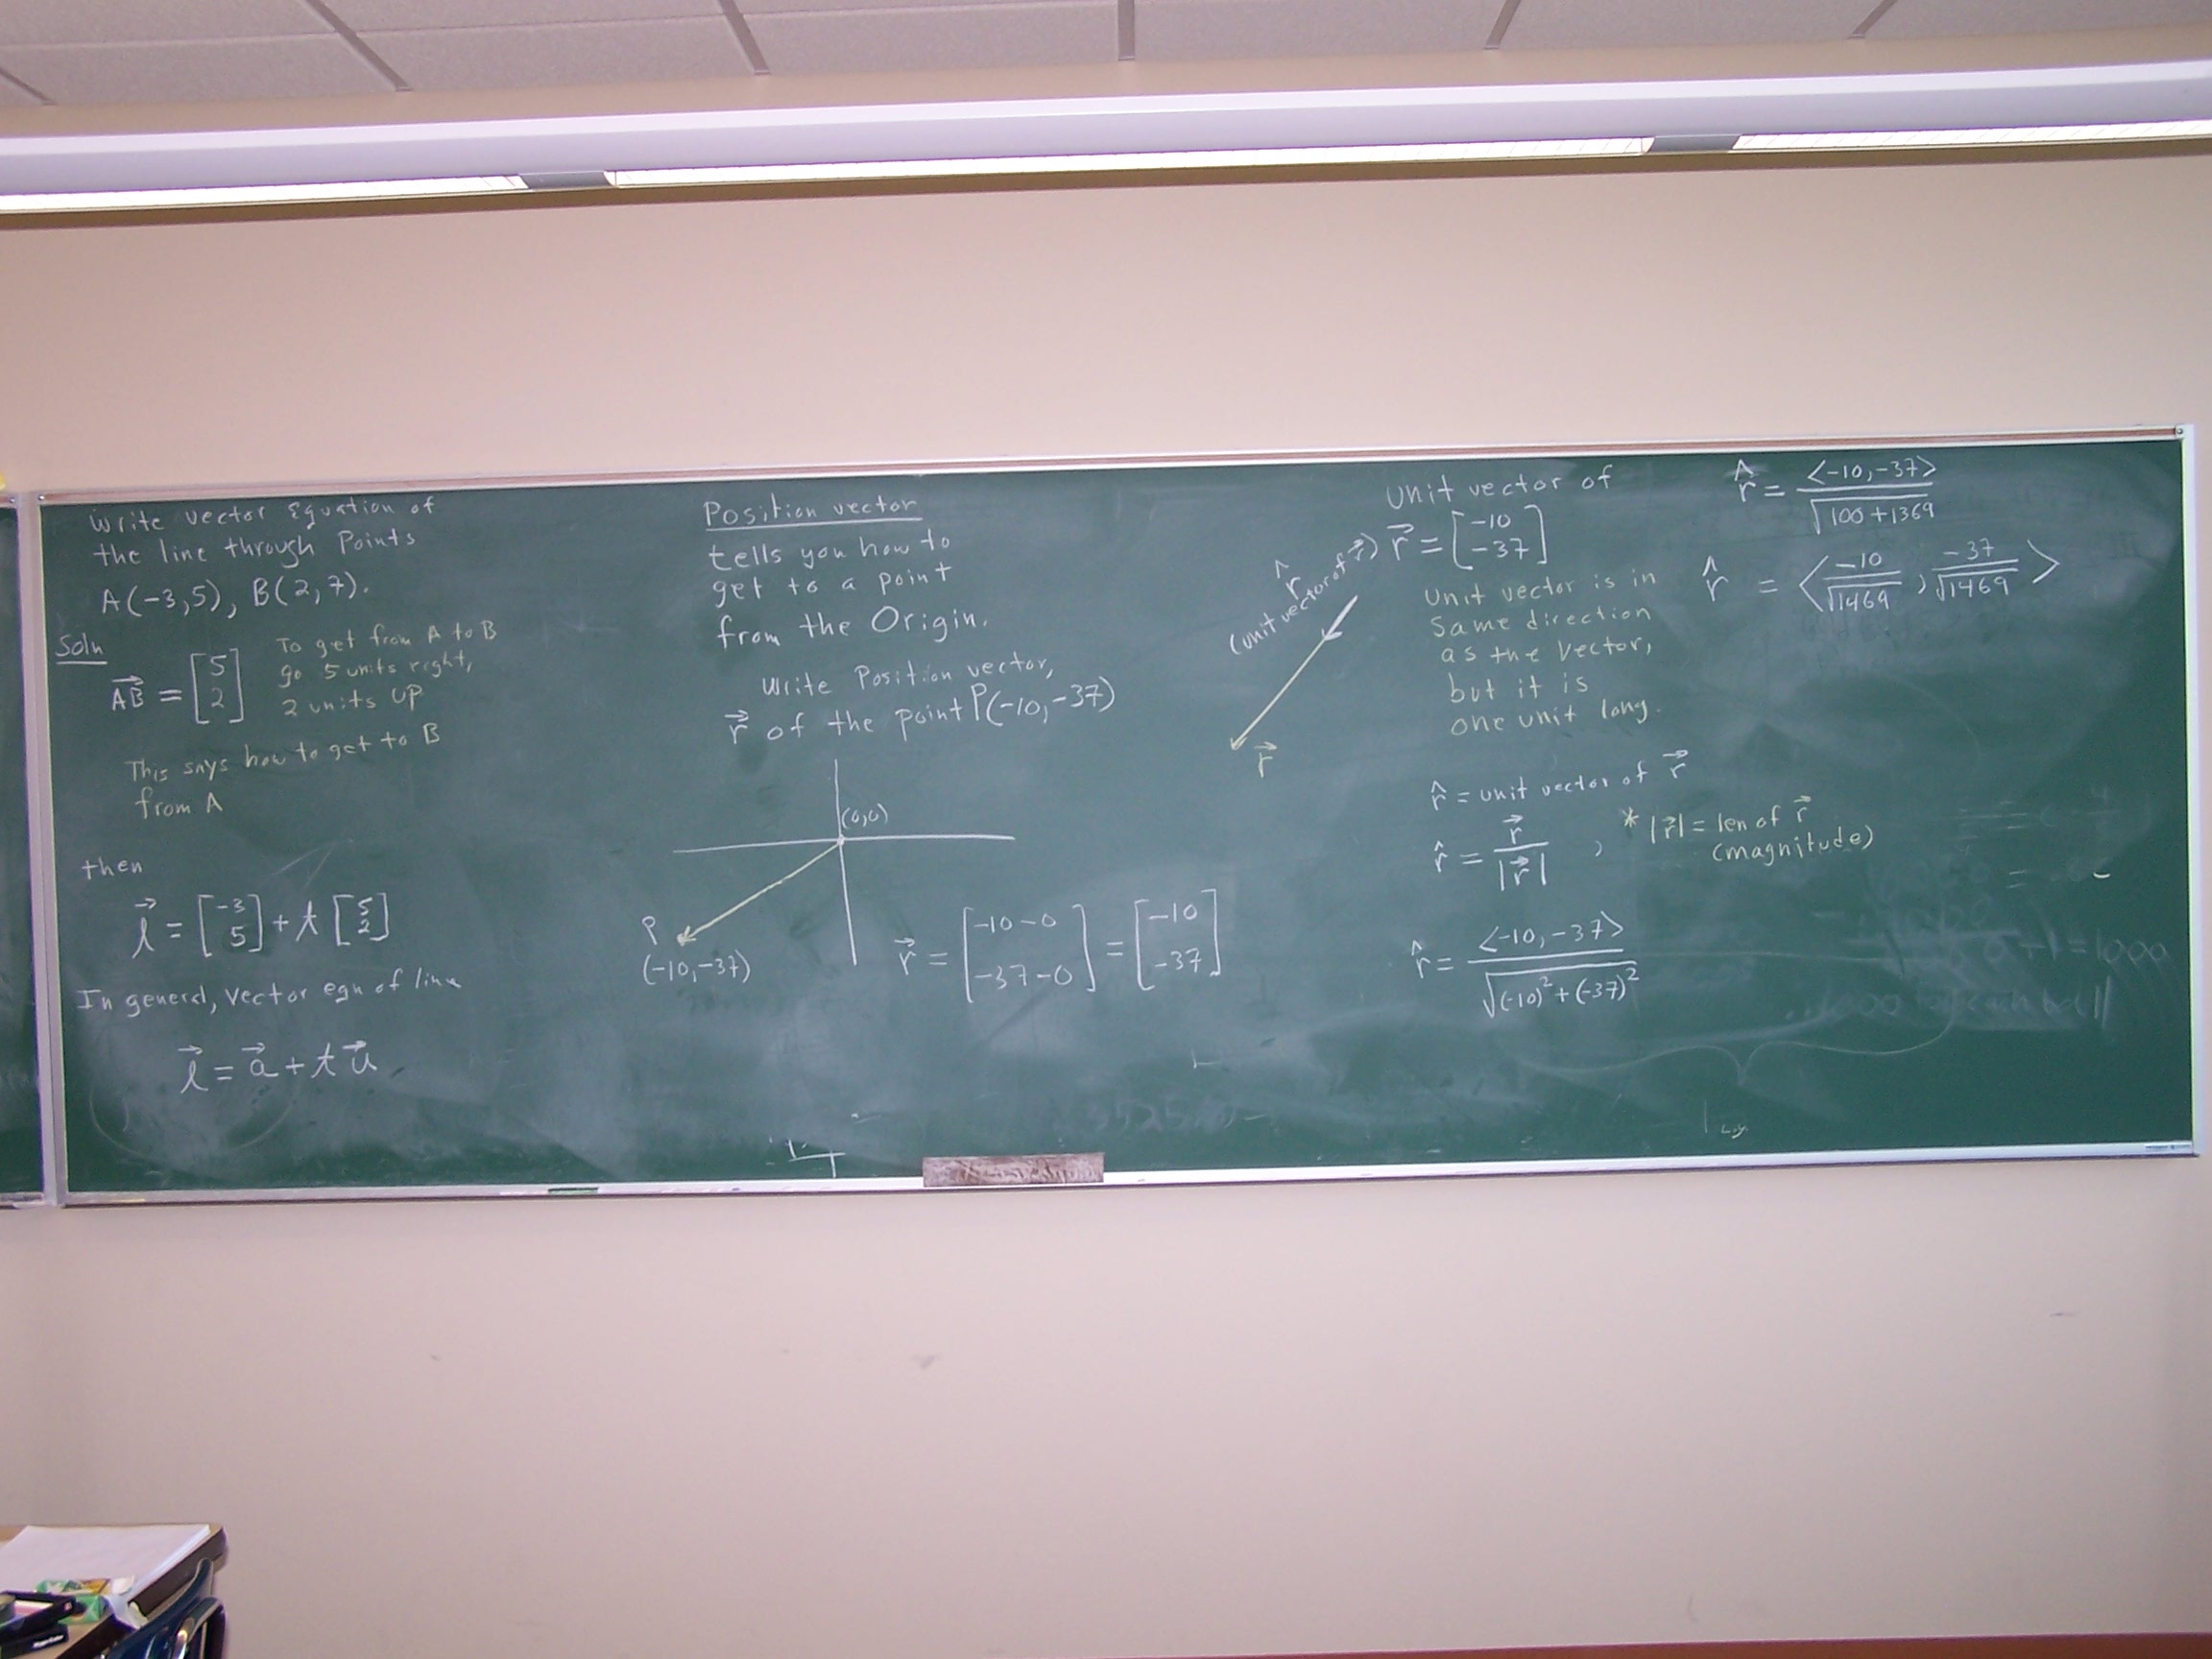 Write vector Equation of
the line through Points
A(-3,5), B(2,7).
Soln
AB⃗ = [5 2]
To get from A to B
go 5 units right,
2 units up
This says how to get to B
from A
then
l⃗ = [-3 5] + t [5 2]
In general, vector eqn of line
l⃗ = a⃗ + t u⃗
Position vector
tells you how to
get to a point
from the Origin.
Write Position vector,
r⃗ of the point P(-10,-37)
(0,0)
P
(-10,-37)
r⃗ = [-10-0 -37-0] = [-10 -37]
Unit vector of
r⃗ = [-10 -37]
r̂
(unit vector of r⃗)
r⃗
Unit vector is in
same direction
as the vector,
but it is
one unit long.
r̂ = unit vector of r⃗
r̂ = r⃗ / |r⃗| , * |r⃗| = len of r⃗
(magnitude)
r̂ = <-10,-37> / √((-10)²+(-37)²)
r̂ = <-10,-37> / √(100+1369)
r̂ = <-10/√1469, -37/√1469>
+1=1000